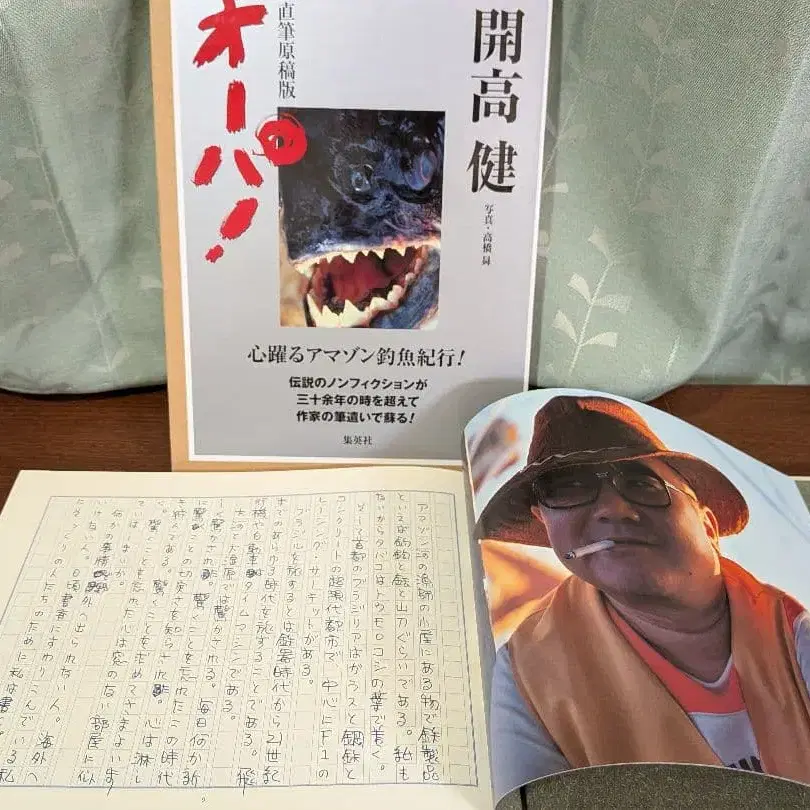 開高 健
写真・高橋曻
オーパ!
直筆原稿版
心躍るアマゾン釣魚紀行!
伝説のノンフィクションが
三十余年の時を超えて
作家の筆遣いで蘇る!
集英社
アマゾン河の漁師の小屋にある物で鉄製品
といえば釣鈎と銛と山刀ぐらいである。紙も
ないからタバコはトウモロコシの葉で巻く。
そして首都のブラジリアはガラスと鋼鉄と
コンクリートの超現代都市で、中心にF1の
レーシング・サーキットがある。
ブラジルを旅するとは鉄器時代から21世紀
までのあらゆる時代を旅することである。飛
行機や自動車はタイムマシンである。
大地の大海原には驚かされる。毎日何か新
しく驚かされる。驚くことを忘れたこの時代
に驚くことの大切さを知らされる。心は淋し
き狩人である。驚くことを求めてさまよいま
驚くことを忘れた心は窓のない部屋に似
ていはしまいか。
何かの事情で野外へ出られない人。海外へ
いけない人。日頃書斎にすわりこんでいる
の人たちのために私は書く。